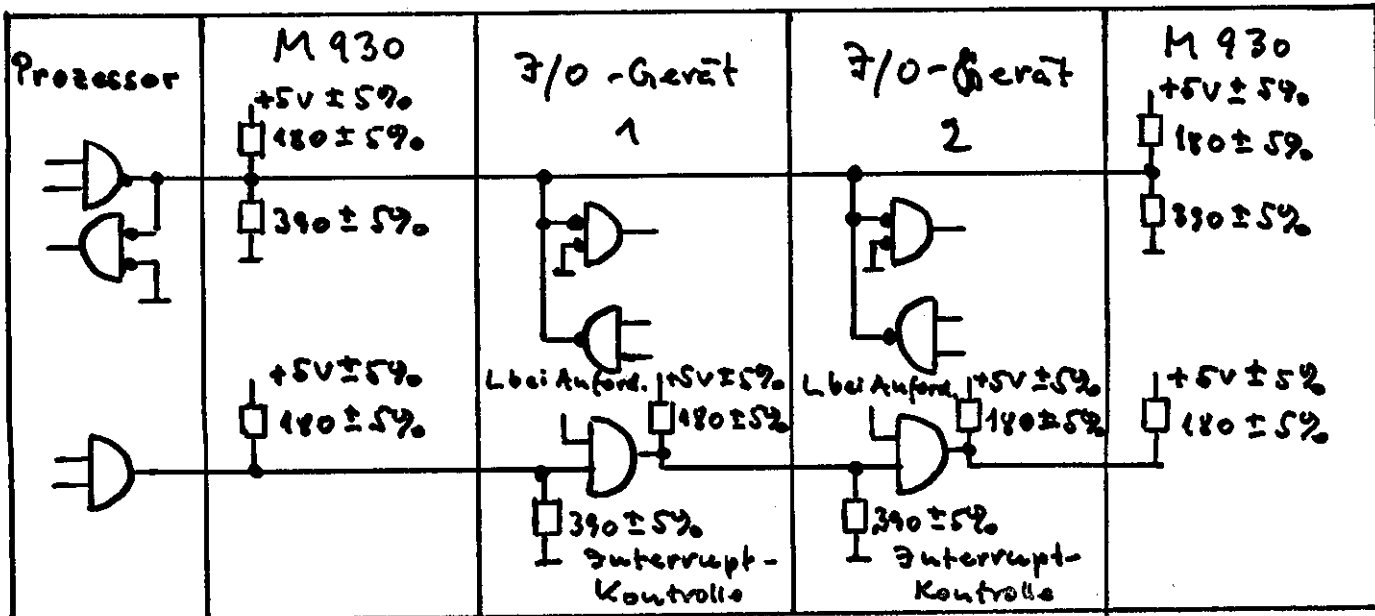 Prozessor
M 930
+5V ± 5%
180 ± 5%
390 ± 5%
+5V ± 5%
180 ± 5%
I/O-Gerät
1
L bei Anford.
+5V ± 5%
180 ± 5%
390 ± 5%
Interrupt-
Kontrolle
I/O-Gerät
2
L bei Anford.
+5V ± 5%
180 ± 5%
390 ± 5%
Interrupt-
Kontrolle
M 930
+5V ± 5%
180 ± 5%
390 ± 5%
+5V ± 5%
180 ± 5%